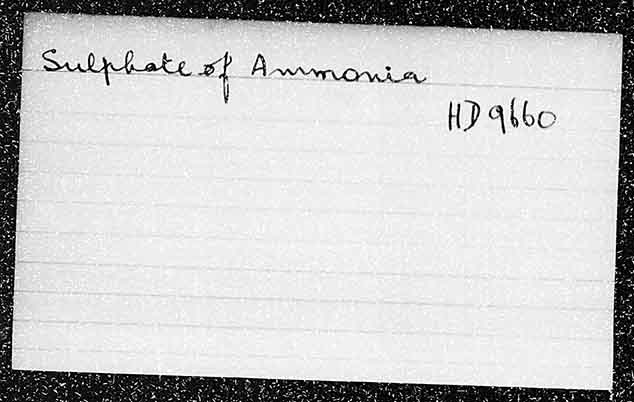 Sulphate of Ammonia
HD 9660